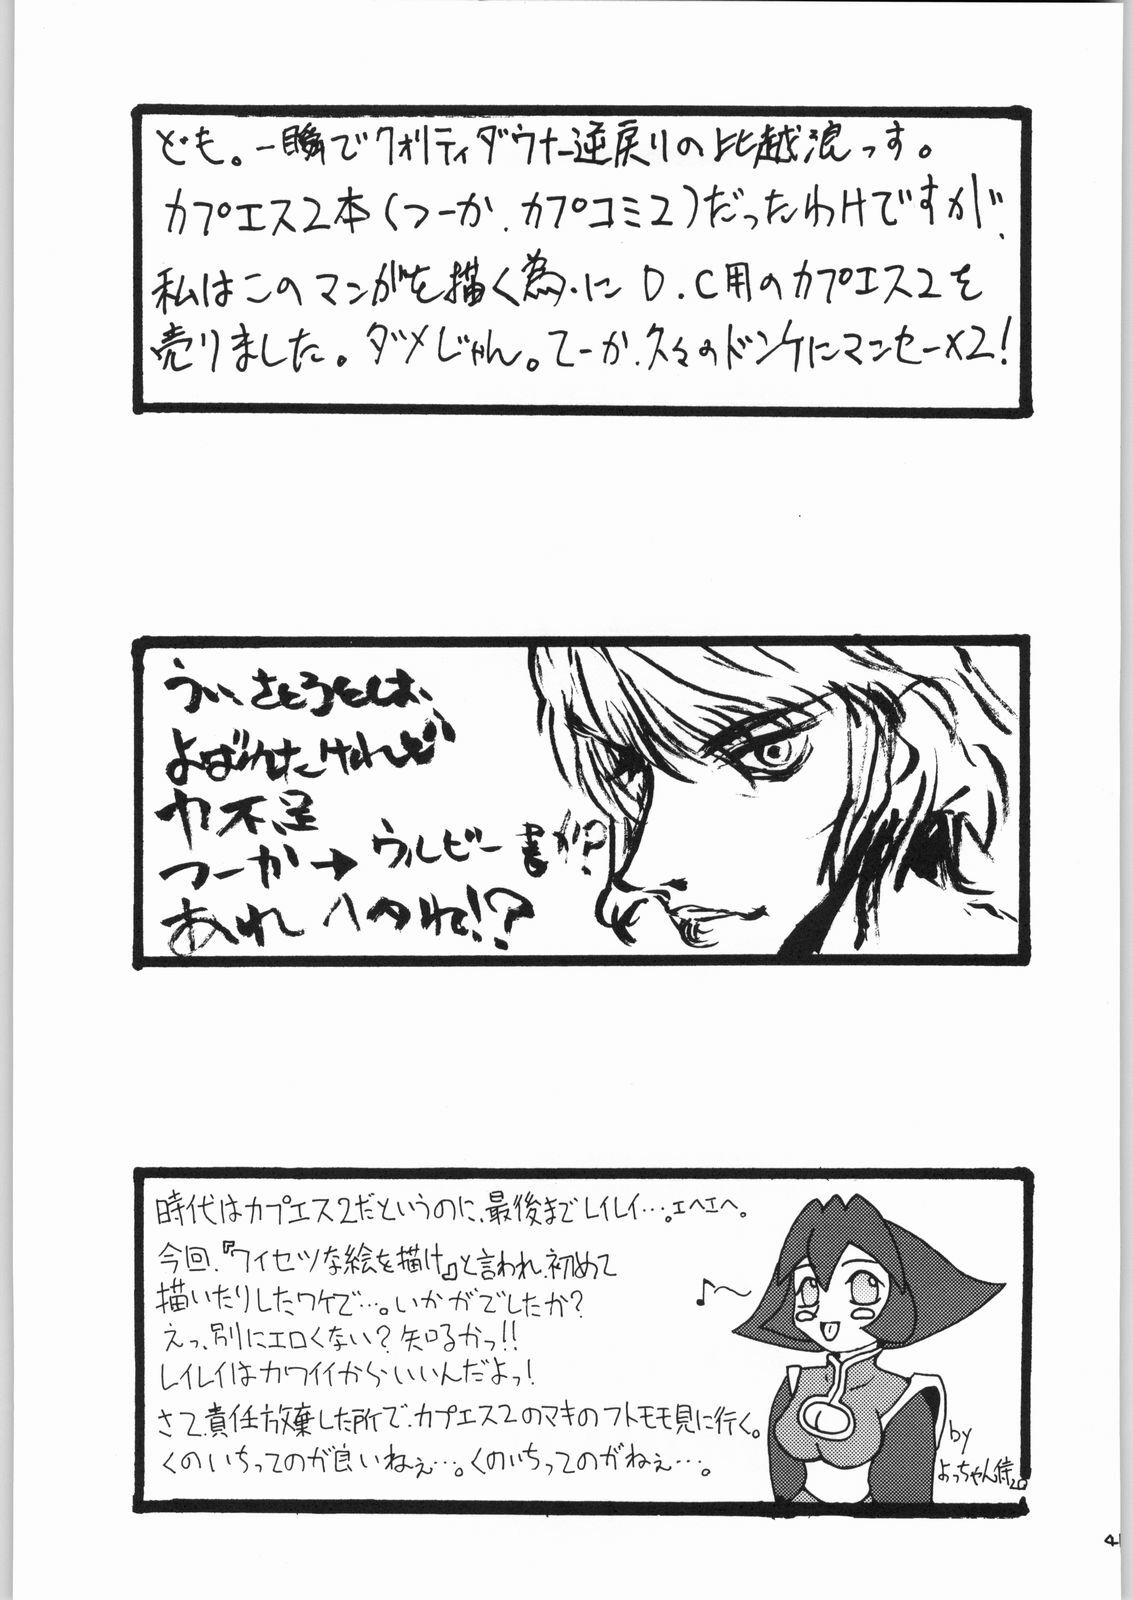 ども。一瞬でクオリティダウナー逆戻りの比越浪っす。
カプエス2本(つーか、カプコミ2)だったわけですが、
私はこのマンガを描く為、にD.C用のカプエス2を
売りました。ダメじゃん。てーか、久々のドンケにマンセー×2!
うい、さとうとしお、
よばれたけれど
力不足
つーか→ウルビー書か?
あれ
時代はカプエス2だというのに、最後までレイレイ…。エヘエヘ。
今回、『ワイセツな絵を描け』と言われ、初めて
描いたりしたワケで…。いかがでしたか?
えっ、別にエロくない?知るかっ!!
レイレイはカワイイからいいんだよっ!
さて、責任放棄した所で、カプエス2のマキのフトモモ見に行く。
くのいちってのが良いねぇ…。くのいちってのがねぇ…。
♪〜
by
よっちゃん侍